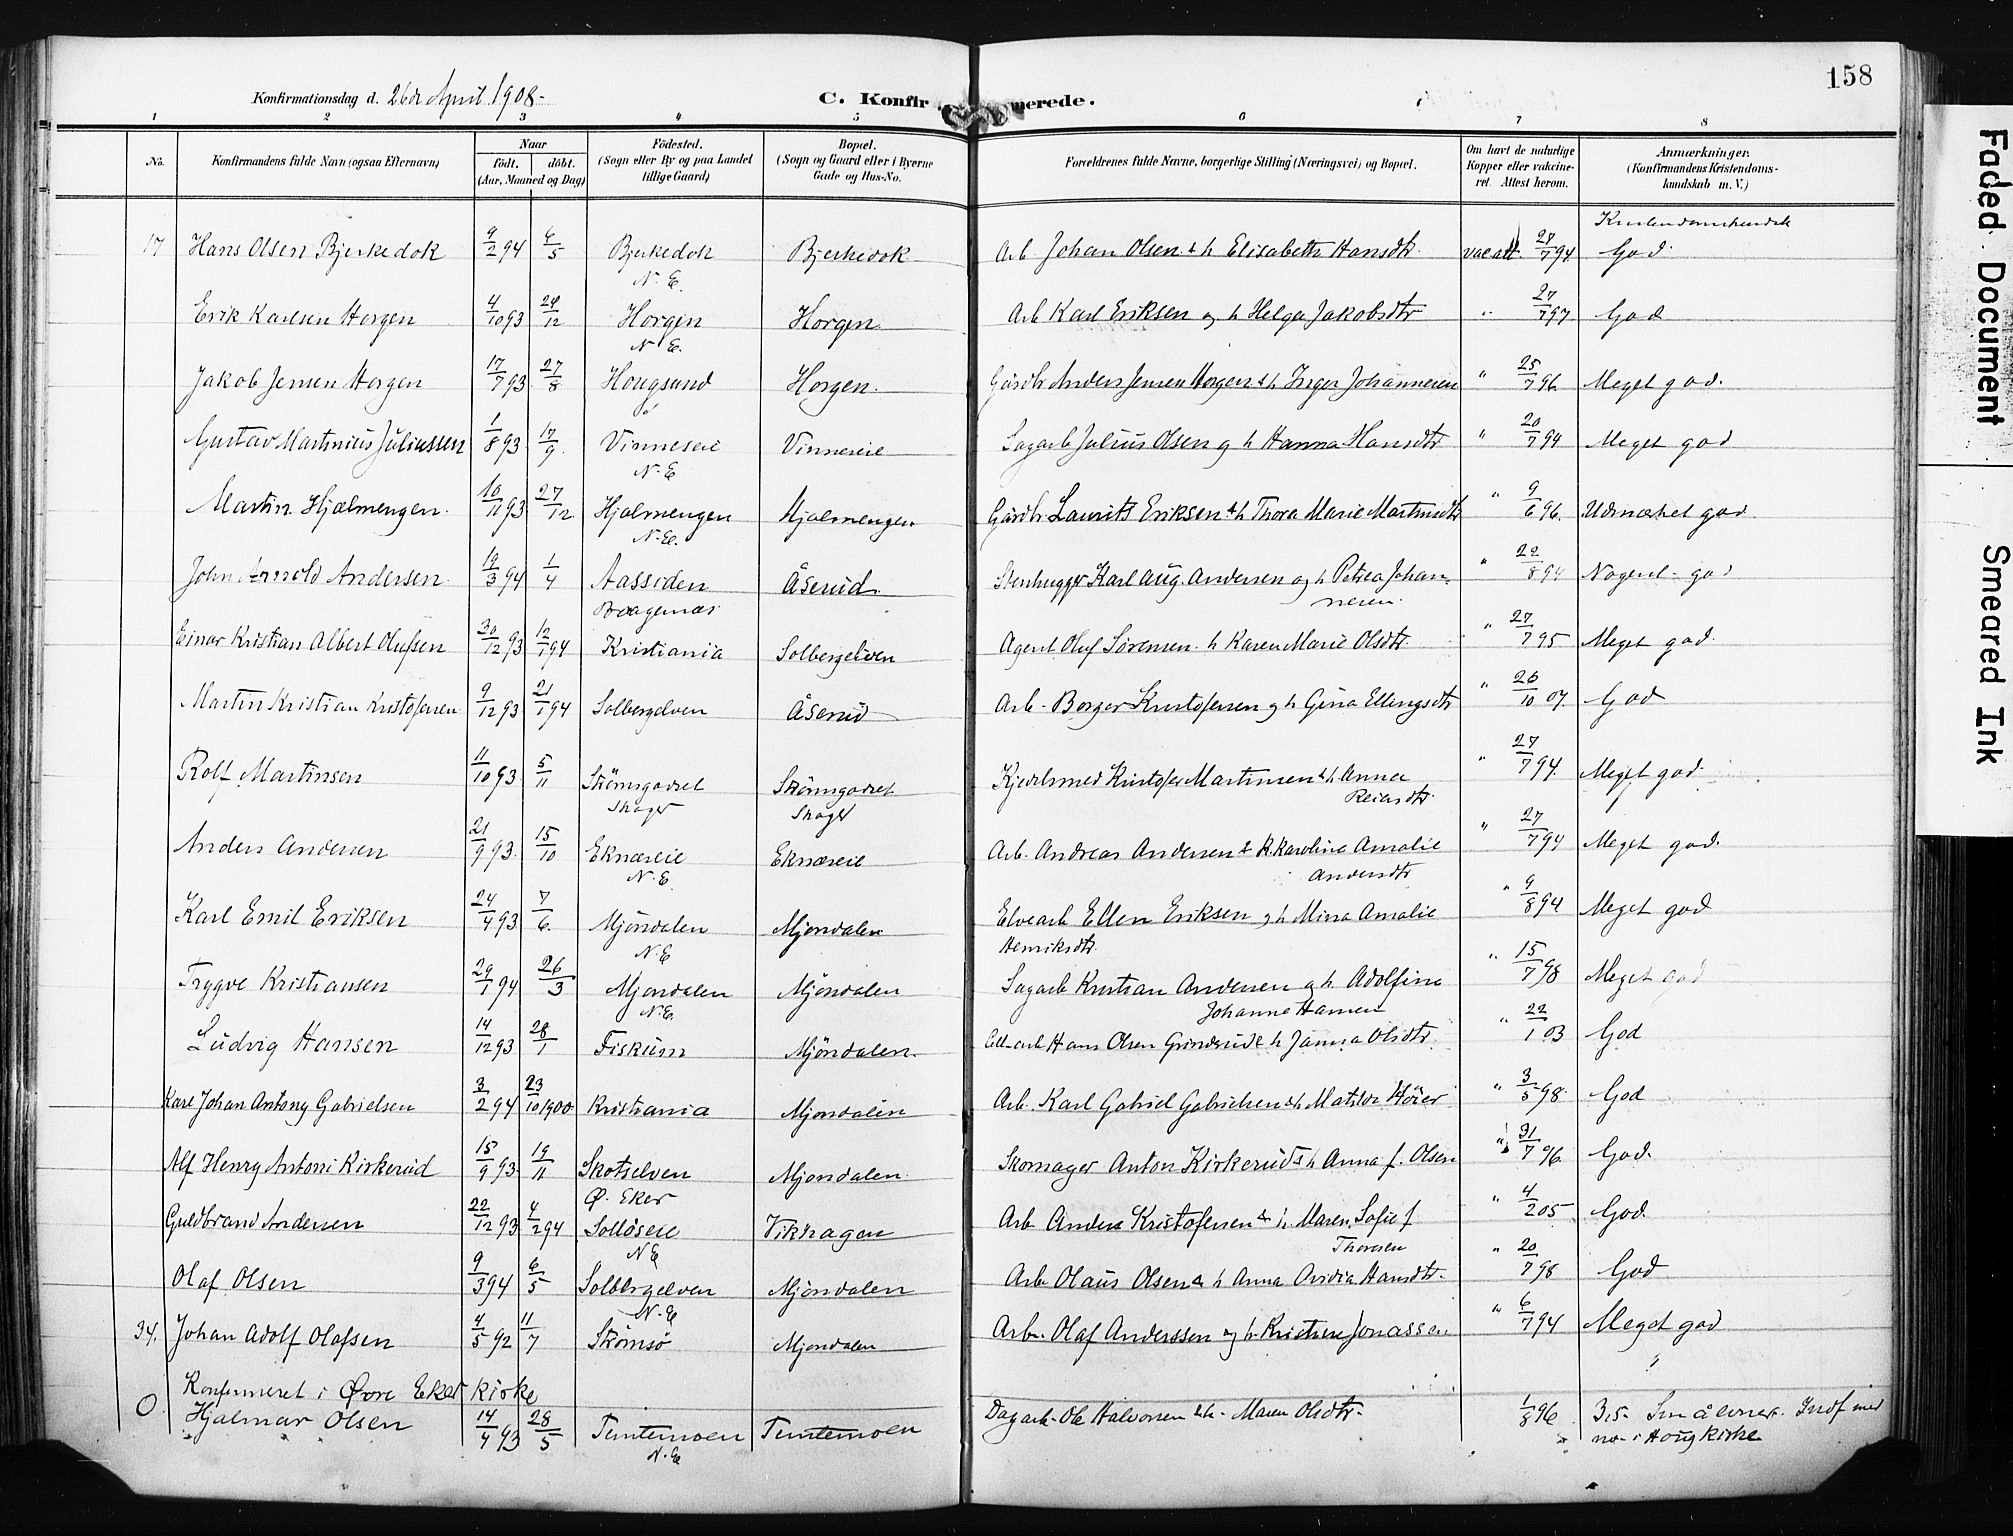 158
Konfirmationsdag d. 26de April 1908.
C. Konfir merede.
1 2 3 4 5 6 7 8
No. Konfirmandens fulde Navn (ogsaa Efternavn) Naar født, døbt. (Aar, Maaned og Dag) Fødested. (Sogn eller By og paa Landet tillige Gaard) Bopæl. (Sogn og Gaard eller i Byerne Gade og Hus-No. Forældrenes fulde Navne, borgerlige Stilling (Næringsvei) og Bopæl. Om havt de naturlige Kopper eller vakcineret. Attest herom. Anmærkninger. (Konfirmandens Kristendomskundskab m. V.)
17 Hans Olsen Bjerkedok 9/2 94 6/5 Bjerkedok N. E. Bjerkedok Arb Johan Olsen & h Elisabeth Hansdtr. 27/7 94 God
Erik Karlsen Horgen 4/10 93 24/12 Horgen N. E. Horgen Arb Karl Eriksen og h Helga Jakobsdtr " 27/7 97 God
Jakob Jensen Horgen 17/7 93 27/8 Hougsund Horgen. Gårdbr Anders Jensen Horgen & h Inger Johannesen " 25/7 96 Meget god.
Gustav Martinius Juliussen 1/8 93 17/9 Vinneseie N. E Vinneseie Sagarb Julius Olsen og h Hanna Hansdtr " 20/7 94 Meget god
Martin Hjælmengen. 10/11 93 27/12 Hjalmengen N. E. Hjalmengen Gårdbr Laurits Eriksen & h Thora Marie Martinsdtr " 9/6 96. Udmærket god
John Arnold Andersen 19/3 94 1/4 Aassiden Bragernæs Åserud Stenhugger Karl Aug. Andersen og h Petrea Johannesen. " 22/8 94 Noget god
Einar Kristian Albert Olufsen 30/12 93 12/1 94 Kristiania Solbergelven Agent Oluf Sørensen h Karen Marie Olsdtr. " 27/7 95 Meget god.
Martin Kristian Kristofersen 9/12 93 21/1 94 Solbergelven Åserud Arb. Borger Kristofersen og h Gina Ellingsdtr " 26/10 07. God
Rolf Martinsen 11/10 93 5/11 Strömsgodset Skoger Strömsgodset Skoger Kjedelsmed Kristofer Martinsen & h Anna Reiersdtr. " 27/7 94. Meget god.
Anders Andersen 21/9 93. 15/10 Eknæseie N. E Eknæseie Arb. Andreas Andersen & h. Karoline Amalie Andersdtr " 27/7 94 Meget god.
Karl Emil Eriksen 24/4 93 7/6. Mjöndalen N. E Mjöndalen Elvearb Ellen Eriksen og h Mina Amalie Henriksdtr. " 9/8 94 Meget god
Trygve Kristiansen 29/1 94 26/3 Mjöndalen N. E. Mjöndalen Sagarb Kristian Andersen og h Adolfine Johanne Hansen " 15/7 98 Meget god
Ludvig Hansen 14/12 93 28/1 Fiskum Mjöndalen. Hans Olsen Grinderud & h Janna Olsdtr. " 22/1 03 God
Karl Johan Antony Gabrielsen 3/2 94 23/10 1900 Kristiania Mjöndalen Arb. Karl Gabriel Gabrielsen & h Matilda Höier " 3/5 98. God
Alf Henry Antoni Kirkerud 15/9 93. 19/11 Skotselven Ø. Eker Mjöndalen. Skomager Anton Kirkerud & h Anna f. Olsen " 31/7 96. God.
Guldbrand Andersen 22/12 93 4/2 94 Solløseie N E Vikhagen Arb Anders Kristofersen & h. Maren Sofie f Thoresen " 4/2 05 God
Olaf Olsen 9/3 94 6/5 Solbergelven N. E Mjöndalen Arb Olaus Olsen & h Anna Ovidia Hansdtr. " 20/7 98 God
34. Johan Adolf Olafsen 4/5 92 11/7 Strömsö Mjöndalen Arb. Olaf Anderssen og h. Kristine Jonassen. " 6/7 94 Meget god
Konfirmeret i Øvre Eker Kirke
O Hjalmar Olsen 14/4 93 28/5 Temtemoen N. E Temtemoen Dagarb. Ole Halvorsen & h. Maren Olsdtr. 1/8 96
Faded Document
Smeared Ink